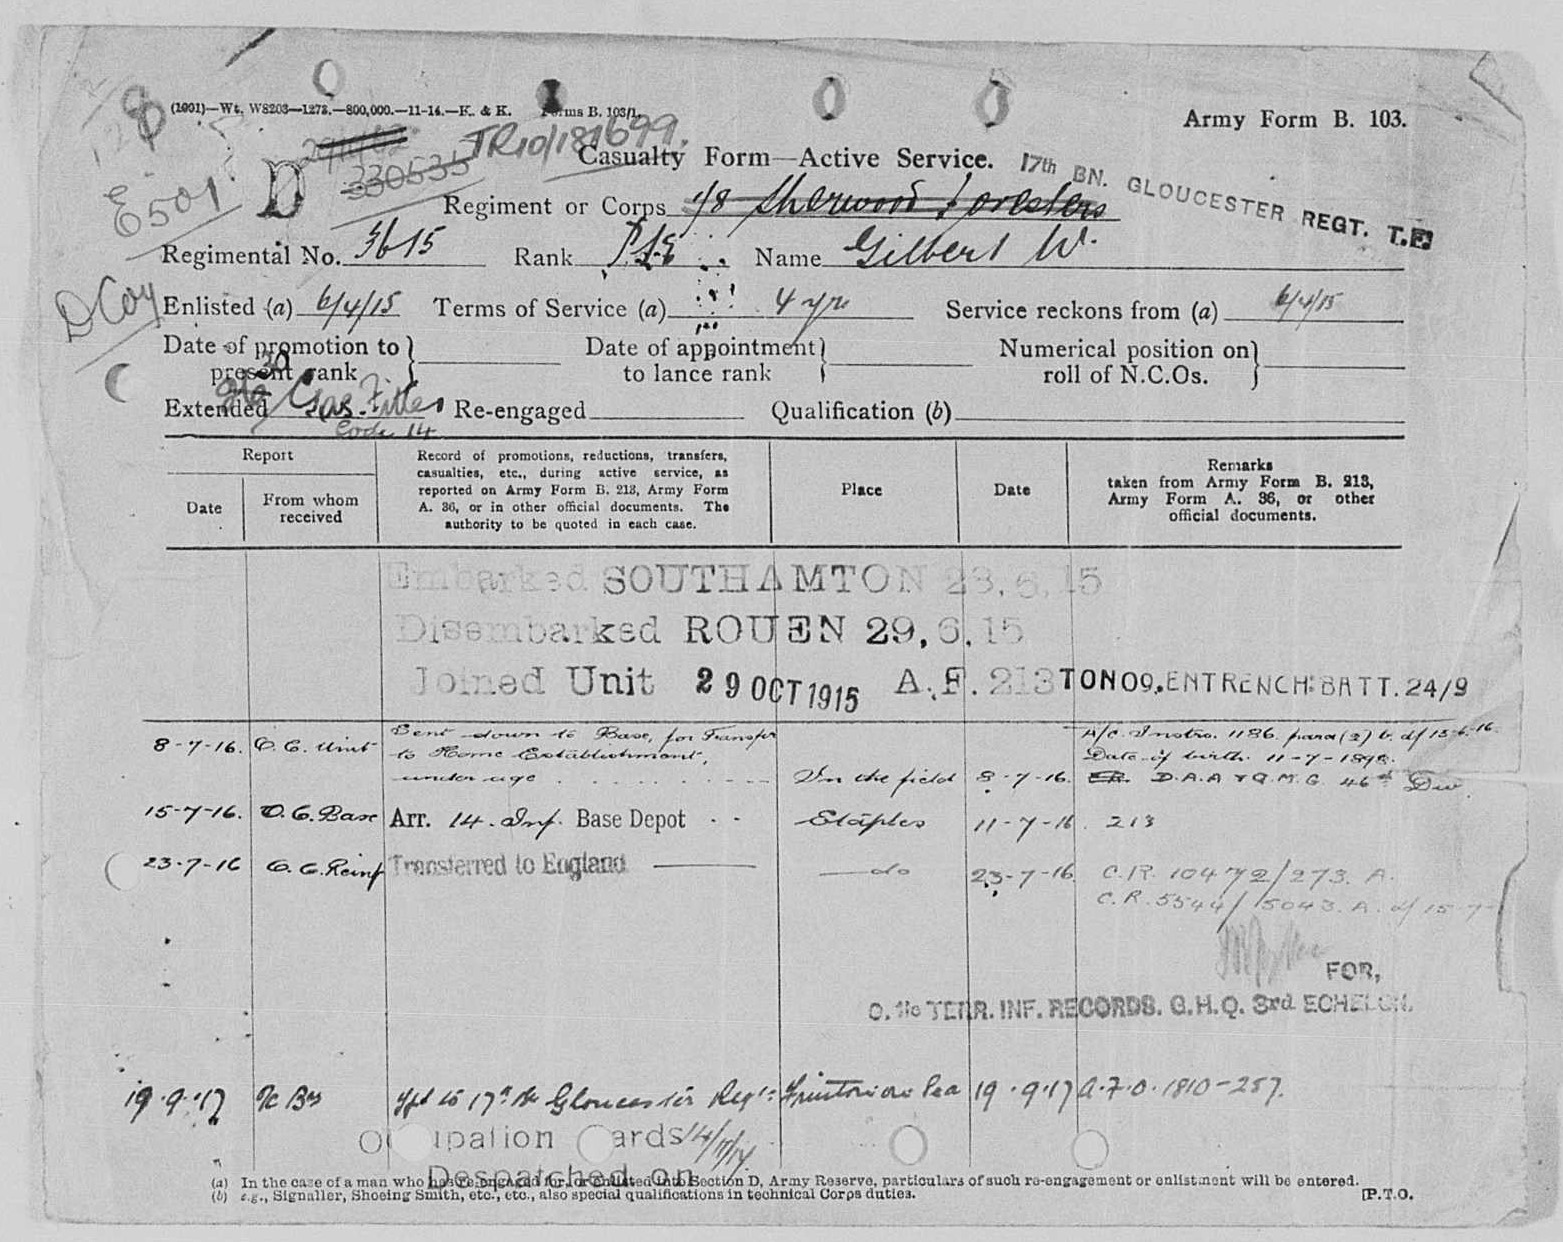 (1901)—Wt. W8203—1273.—800,000.—11-14.—K. & K. Forms B. 103/1.
Army Form B. 103.
128
330535
TR10/181699.
Casualty Form—Active Service.
17th BN. GLOUCESTER REGT. T.F.
E501
D
Regiment or Corps 1/8 Sherwood Foresters
Regimental No. 3615 Rank Pte Name Gilbert W.
D Coy
Enlisted (a) 6/4/15 Terms of Service (a) 4 yrs Service reckons from (a) 6/4/15
Date of promotion to present rank Date of appointment to lance rank Numerical position on roll of N.C.Os.
Extended Gas-Fitter Re-engaged Qualification (b)
Code 14
Report
Date
From whom received
Record of promotions, reductions, transfers,
casualties, etc., during active service, as
reported on Army Form B. 213, Army Form
A. 36, or in other official documents. The
authority to be quoted in each case.
Place
Date
Remarks
taken from Army Form B. 213,
Army Form A. 36, or other
official documents.
Embarked SOUTHAMTON 28.6.15
Disembarked ROUEN 29.6.15
Joined Unit 29 OCT 1915 A.F. 213 TO NO 9, ENTRENCH: BATT. 24/9
8-7-16. O.C. Unit Sent down to Base, for Transfer
to Home Establishment,
under age In the field 8-7-16.
A/c. Instro. 1186 para (2) b. d/ 15-6-16.
Date of birth. 11-7-1898.
D.A.A & Q.M.G. 46th Div.
15-7-16. O.C. Base Arr. 14. Inf. Base Depot - - Etaples 11-7-16. 213
23-7-16 O.C. Reinf Transferred to England do 23-7-16. C.R. 10472/273. A.
C.R. 5544/15043. A. d/ 15-7-
FOR,
O. i/c TERR. INF. RECORDS. G.H.Q. 3rd ECHELON.
19.9.17 Tpd to 17th Bn Gloucester Regt: Frinton on Sea 19.9.17 A.F.O. 1810-257.
Occupation Cards
Despatched on
(a) In the case of a man who has re-engaged for, or enlisted into Section D, Army Reserve, particulars of such re-engagement or enlistment will be entered.
(b) e.g., Signaller, Shoeing Smith, etc., etc., also special qualifications in technical Corps duties.
[P.T.O.